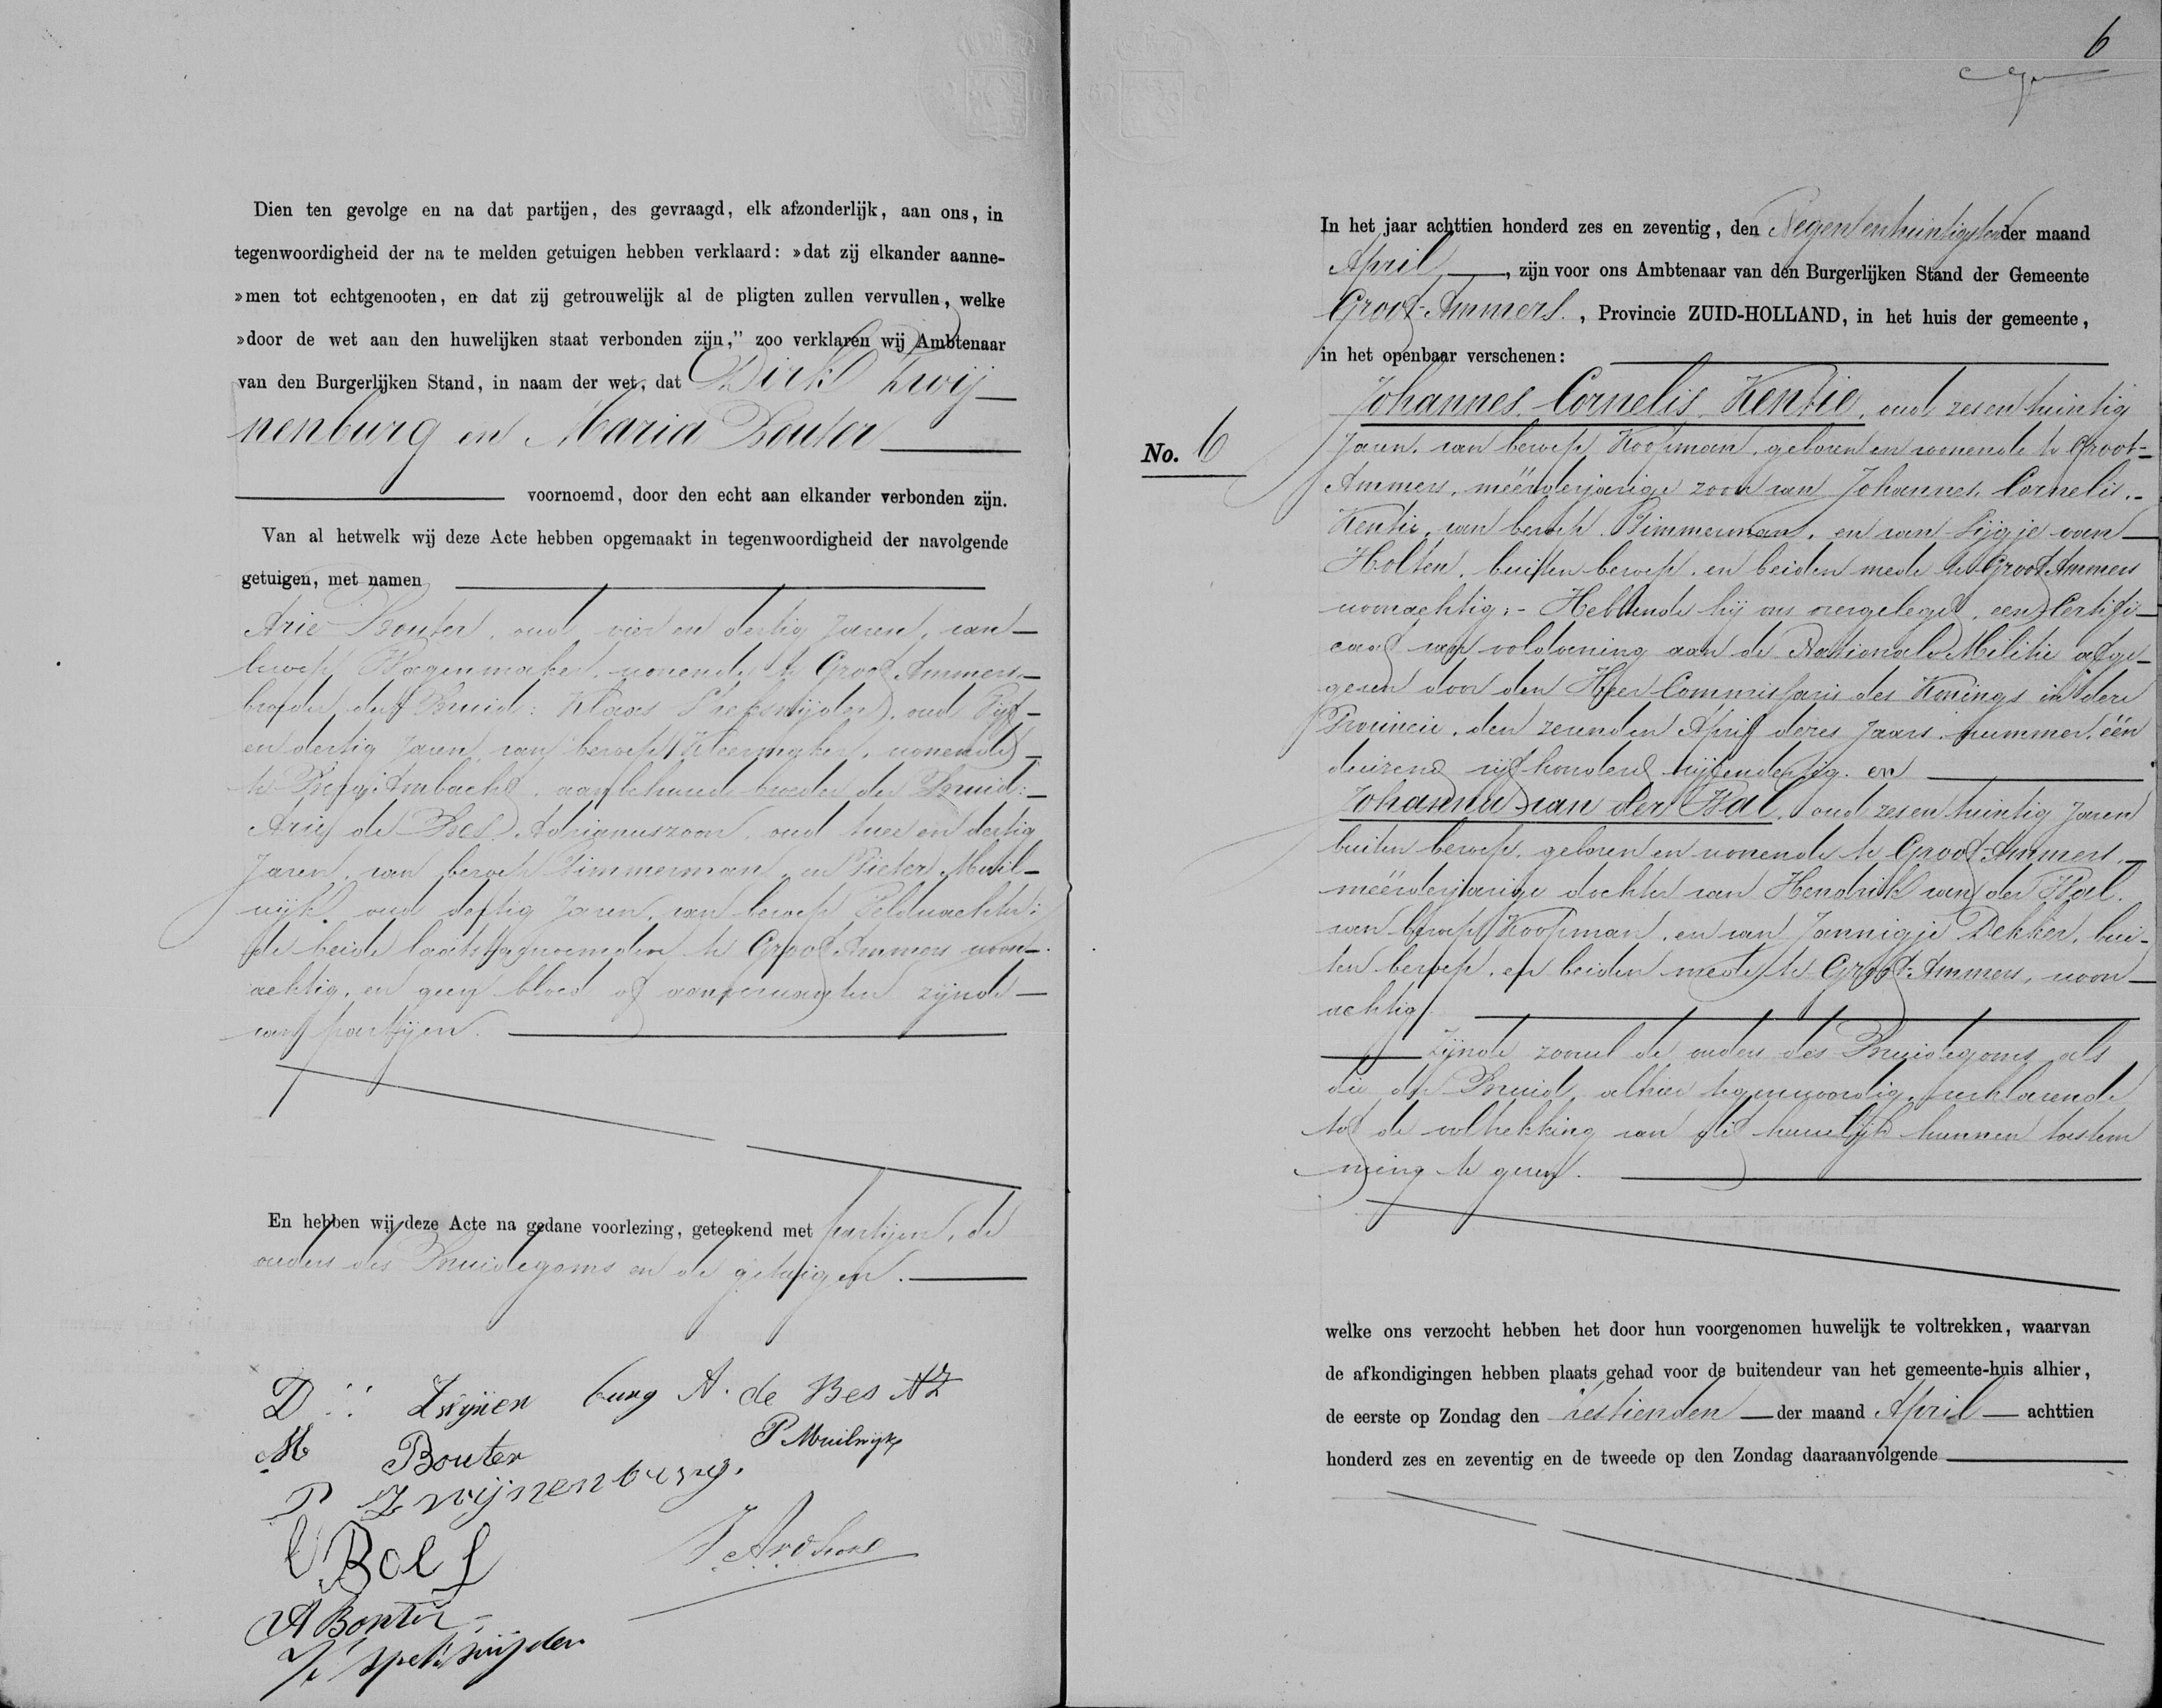 Dien ten gevolge en na dat partijen, des gevraagd, elk afzonderlijk, aan ons, in
tegenwoordigheid der na te melden getuigen hebben verklaard: »dat zij elkander aanne-
»men tot echtgenooten, en dat zij getrouwelijk al de pligten zullen vervullen, welke
»door de wet aan den huwelijken staat verbonden zijn," zoo verklaren wij Ambtenaar
van den Burgerlijken Stand, in naam der wet, dat Dirk Zwij
nenburg en Maria Bouter
voornoemd, door den echt aan elkander verbonden zijn.
Van al hetwelk wij deze Acte hebben opgemaakt in tegenwoordigheid der navolgende
getuigen, met namen
Arie Bouter, oud vier en dertig Jaren, van
beroep Wagenmaker, wonende te Groot Ammers
broeder der Bruid: Klaas Speksnijder, oud Vijf-
en dertig Jaren, van beroep Kleermaker, wonende
te Berg-Ambacht, aanbehuwde broeder der Bruid:
Arie de Bes Adrianuszoon, oud twee en dertig
Jaren, van beroep Timmerman, en Pieter Muil-
wijk, oud dertig Jaren, van beroep Veldwachter;
de beide laatstgenoemden te Groot Ammers woon-
achtig, en geen bloed of aanverwanten zijnde
van partijen.
En hebben wij deze Acte na gedane voorlezing, geteekend met partijen, de
ouders des Bruidegoms en de getuigen.
D Zwijnen burg A. de Bes AZ
M Bouter P Muilwijk
P Zwijnenburg.
A Bouter
K Speksnijder
6
In het jaar achttien honderd zes en zeventig, den Negen en twintigsten der maand
April, zijn voor ons Ambtenaar van den Burgerlijken Stand der Gemeente
Groot-Ammers, Provincie ZUID-HOLLAND, in het huis der gemeente,
in het openbaar verschenen:
No. 6
Johannes Cornelis Kentie, oud zes en twintig
Jaren, van beroep Koopman, geboren en wonende te Groot-
Ammers, meërderjarige zoon van Johannes Cornelis
Kentie, van beroep Timmerman, en van Sijgje van
Holten, buiten beroep, en beiden mede te Groot Ammers
woonachtig; - Hebbende hij ons overgelegd, een Certifi-
caat van voldoening aan de Nationale Militie afge-
geven door den Heer Commissaris des Konings in deze
Provincie, den zevenden April dezes Jaars, nummer één
duizend vijf honderd vijfendertig en
Johanna van der Wal, oud zes en twintig Jaren
buiten beroep, geboren en wonende te Groot-Ammers,
meërderjarige dochter van Hendrik van der Wal,
van beroep Koopman, en van Jannigje Dekker, bui-
ten beroep, en beiden mede te Groot-Ammers, woon-
achtig.
Zijnde zoowel de ouders des Bruidegoms als
die der Bruid, alhier tegenwoordig, verklarende
tot de voltrekking van dit huwelijk hunnen toestem
ming te geven.
welke ons verzocht hebben het door hun voorgenomen huwelijk te voltrekken, waarvan
de afkondigingen hebben plaats gehad voor de buitendeur van het gemeente-huis alhier,
de eerste op Zondag den zestienden der maand April achttien
honderd zes en zeventig en de tweede op den Zondag daaraanvolgende